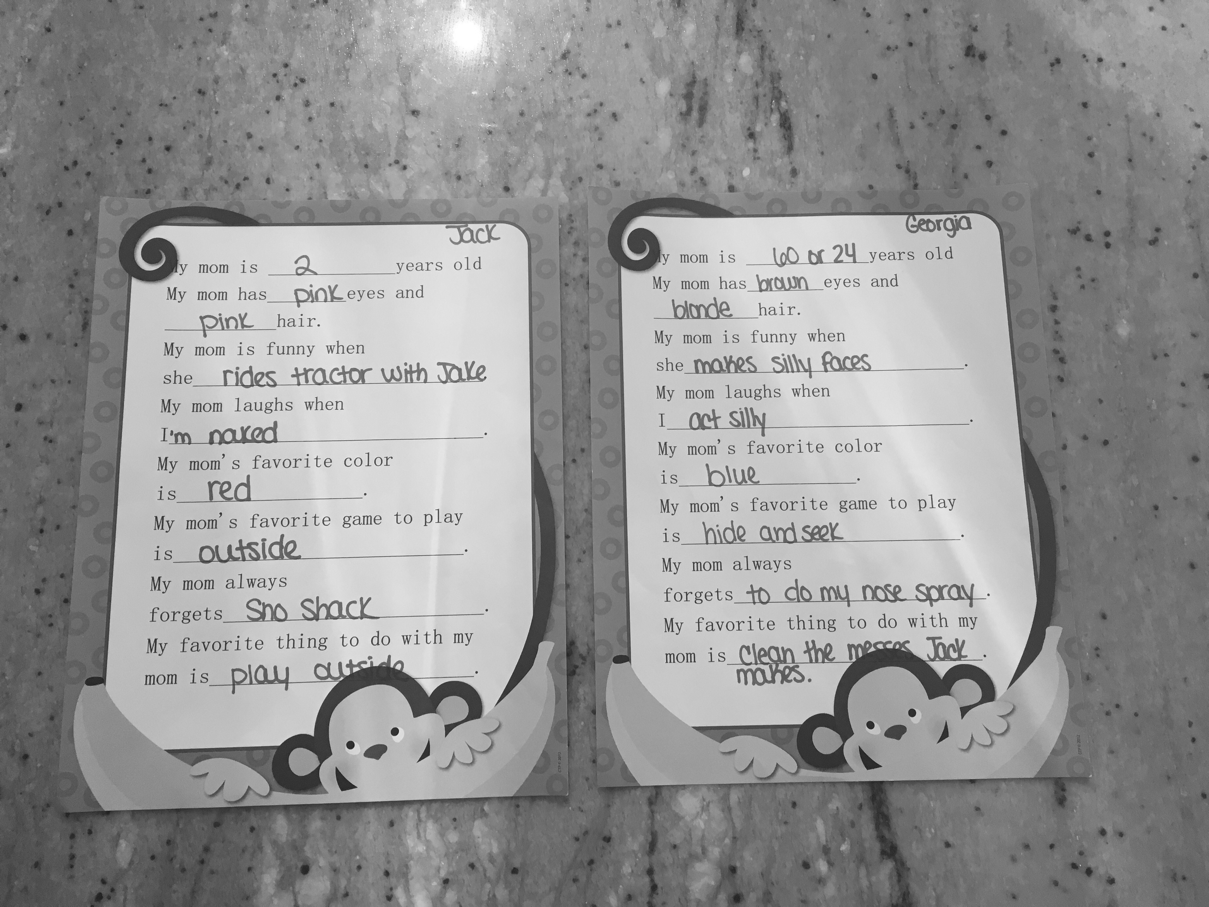 Jack
My mom is 2 years old
My mom has pink eyes and
pink hair.
My mom is funny when
she rides tractor with Jake
My mom laughs when
I'm naked.
My mom's favorite color
is red.
My mom's favorite game to play
is outside.
My mom always
forgets Sno Shack.
My favorite thing to do with my
mom is play outside.
Georgia
My mom is 60 or 24 years old
My mom has brown eyes and
blonde hair.
My mom is funny when
she makes silly faces.
My mom laughs when
I act silly.
My mom's favorite color
is blue.
My mom's favorite game to play
is hide and seek.
My mom always
forgets to do my nose spray.
My favorite thing to do with my
mom is clean the messes Jack.
makes.